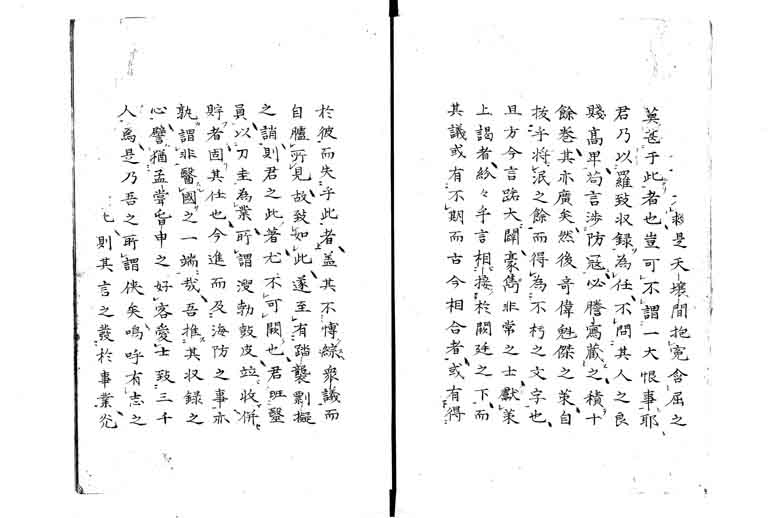 是天壤間抱寃含屈之
莫甚于此者也豈可不謂一大恨事耶
君乃以羅致収録為任不問其人之良
賤高卑苟言渉防寇必謄寫蔵之積十
餘巻其亦廣矣然後奇偉魁傑之策自
抜乎将泯之餘而得為不朽之文字也
且方今言路大闢豪儁非常之士獻策
上謁者紛々乎言相接於闕廷之下而
其議或有不期而古今相合者或有得
於彼而失乎此者盖其不慱綜衆議而
自臆所見故致如此遂至有踏襲剽擬
之誚則君之此著尤不可闕也君旺醫
員以刀圭為業所謂溲勃鼓皮竝收併
貯者固其任也今進而及海防之事亦
孰謂非醫國之一端哉吾推其収録之
心譬猶孟嘗申之好客愛士致三千
人焉是乃吾之所謂侠矣嗚呼有志之
則其言之發於事業